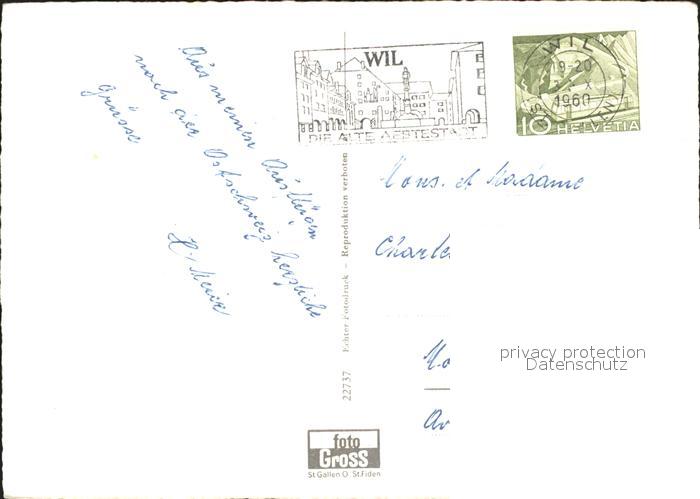 Aus meinen Ausflügen
nach der Ostschweiz herzliche
Grüsse
WIL
DIE ALTE AEBTESTADT
WIL
19-20
X
1960
10 HELVETIA
Mons. et Madame
Charle
Mo
Av
22737 Echter Fotodruck – Reproduktion verboten
foto
Gross
St Gallen O. St.Fiden
privacy protection
Datenschutz